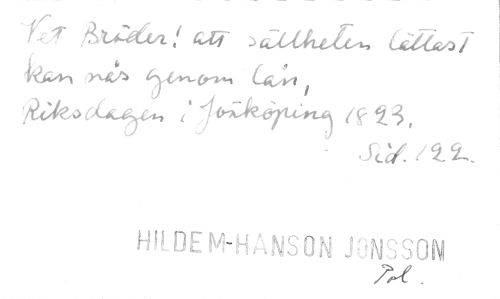 Vet Bröder! att sällheten lättast
kan nås genom lån,
Riksdagen i Jönköping 1823.
Sid. 122.
HILDEM-HANSON JONSSON
Pol.